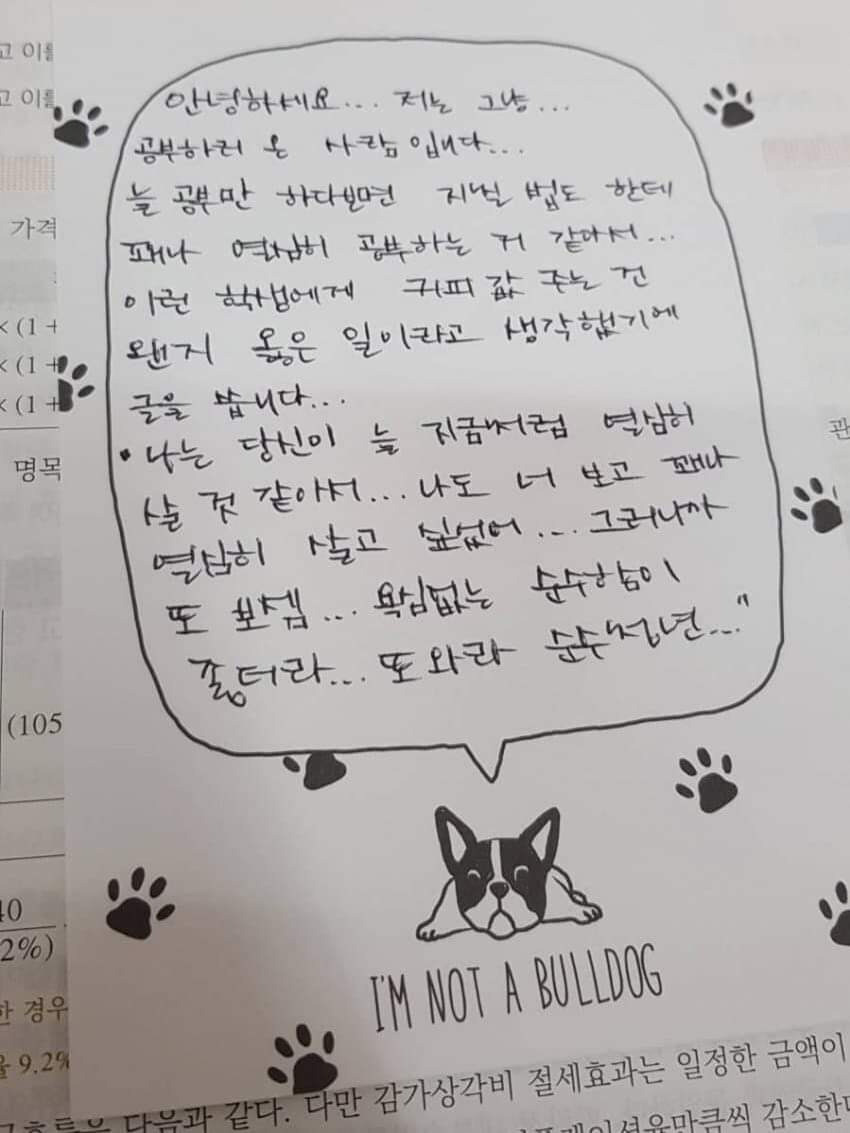 고 이를
고 이를
가격
× (1 +
× (1 +
× (1 +
명목
(105
2%)
한 경우
율 9.2%
관
안녕하세요... 저는 그냥...
공부하러 온 사람입니다...
늘 공부만 하다보면 지닐 법도 한데
꽤나 열심히 공부하는 거 같아서...
이런 학생에게 커피 값 주는 건
왠지 옳은 일이라고 생각했기에
글을 씁니다...
• 나는 당신이 늘 지금처럼 열심히
살 것 같아서... 나도 너 보고 꽤나
열심히 살고 싶었어... 그러니까
또 보셈... 욕심없는 순수함이
좋더라... 또 와라 순수청년..."
I'M NOT A BULLDOG
다음과 같다. 다만 감가상각비 절세효과는 일정한 금액이
감소한다